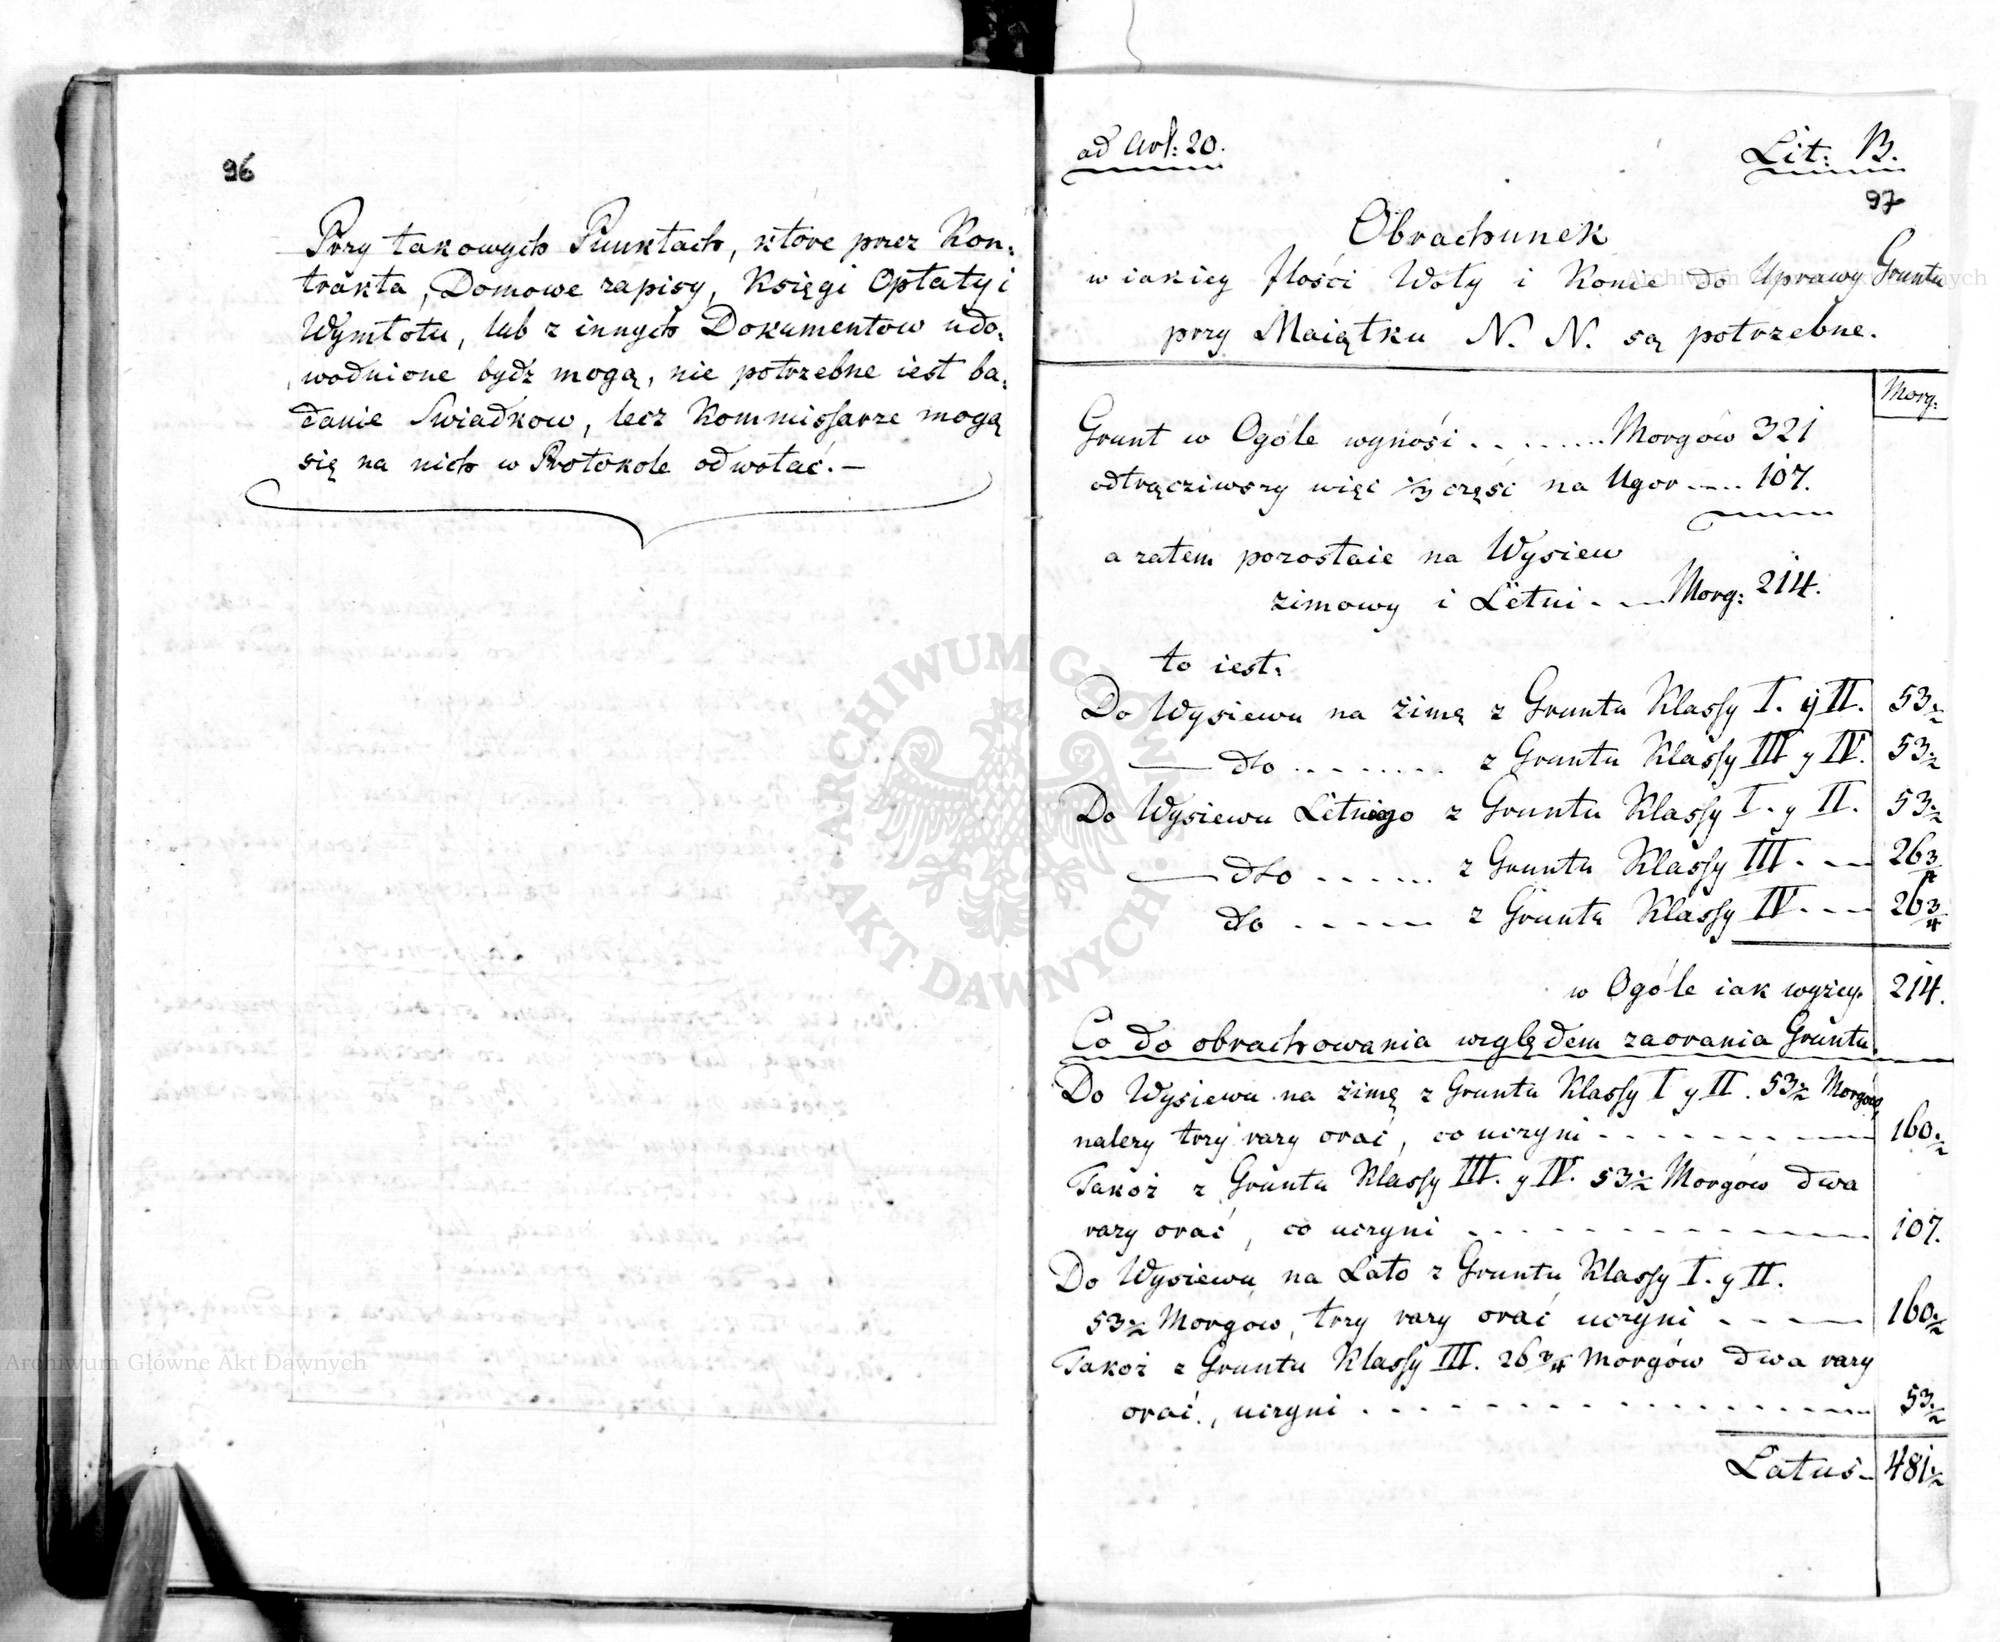 96
Przy takowych Punktach, ktore przez Kon:
trakta, Domowe zapisy, Księgi Opłaty i
Wymłotu, lub z innych Dokumentow udo:
wodnione bydź mogą, nie potrzebne iest ba:
danie Swiadkow, lecz Kommissarze mogą
się na nich w Protokole odwołać. —
ad Art: 20.
Lit: B.
97
Obrachunek
w iakiey Ilości Woły i Konie do Uprawy Gruntu
przy Maiątku N. N. są potrzebne.
Morg:
Grunt w Ogóle wynosi . . . . . . . . Morgów 321
odtrącziwszy więc 1/3 część na Ugor . . . . 107.
a zatem pozostaie na Wysiew
zimowy i Letni . . . Morg: 214.
to iest:
Do Wysiewu na zimę z Gruntu Klassy I. y II. 53 1/2
— dto . . . . . . . z Gruntu Klassy III y IV. 53 1/2
Do Wysiewu Letniego z Gruntu Klassy I. y II. 53 1/2
— dto . . . . . . z Gruntu Klassy III. . . . 26 3/4
dto . . . . . . z Gruntu Klassy IV. . . . 26 3/4
w Ogóle iak wyżey. 214.
Co do obrachowania względem zaorania Gruntu.
Do Wysiewu na zimę z Gruntu Klassy I y II. 53 1/2 Morgów
należy trzy razy orać, co uczyni . . . . . . . . . 160 1/2
Takoż z Gruntu Klassy III. y IV. 53 1/2 Morgów dwa
razy orać, co uczyni . . . . . . . . . . . . . 107.
Do Wysiewu na Lato z Gruntu Klassy I. y II.
53 1/2 Morgow, trzy razy orać uczyni . . . . . 160 1/2
Takoż z Gruntu Klassy III. 26 3/4 Morgów dwa razy
orać, uczyni . . . . . . . . . . . . . . . . . 53 1/2
Latus . 481 1/2
Archiwum Główne Akt Dawnych
Archiwum Główne Akt Dawnych
ARCHIWUM GŁÓWNE AKT DAWNYCH